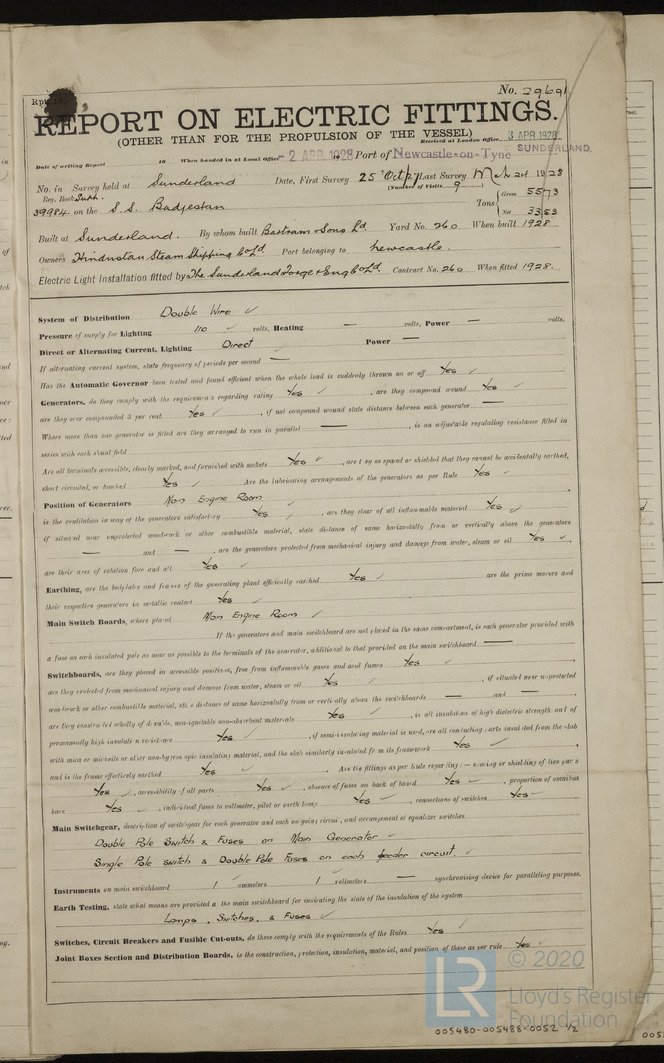 No. 29691
REPORT ON ELECTRIC FITTINGS.
(OTHER THAN FOR THE PROPULSION OF THE VESSEL)
Received at London Office 3 APR 1928
Date of writing Report 19 When handed in at Local Office - 2 APR 1928 Port of Newcastle-on-Tyne SUNDERLAND.
No. in Survey held at Sunderland Date, First Survey 25 Oct/27 Last Survey Mch 24 1928
Reg. Book. (Number of Visits 9)
39984 on the S.S. Badjestan Tons Gross 5573
Net 3353
Built at Sunderland. By whom built Bartram & Sons Ld Yard No. 260 When built 1928
Owners Hindustan Steam Shipping Co Ld. Port belonging to Newcastle.
Electric Light Installation fitted by The Sunderland Forge & Eng Co Ld. Contract No. 260 When fitted 1928.
System of Distribution Double Wire ✓
Pressure of supply for Lighting 110 ✓ volts, Heating — volts, Power — volts.
Direct or Alternating Current, Lighting Direct ✓ Power —
If alternating current system, state frequency of periods per second —
Has the Automatic Governor been tested and found efficient when the whole load is suddenly thrown on or off Yes ✓
Generators, do they comply with the requirements regarding rating Yes ✓, are they compound wound Yes ✓
are they over compounded 5 per cent. Yes ✓, if not compound wound state distance between each generator —
Where more than one generator is fitted are they arranged to run in parallel —, is an adjustable regulating resistance fitted in
series with each shunt field —
Are all terminals accessible, clearly marked, and furnished with sockets Yes ✓, are they so spaced or shielded that they cannot be accidentally earthed,
short circuited, or touched Yes ✓ Are the lubricating arrangements of the generators as per Rule Yes ✓
Position of Generators Main Engine Room ✓
is the ventilation in way of the generators satisfactory Yes ✓, are they clear of all inflammable material Yes ✓
if situated near unprotected woodwork or other combustible material, state distance of same horizontally from or vertically above the generators
— and —, are the generators protected from mechanical injury and damage from water, steam or oil Yes ✓,
are their axes of rotation fore and aft Yes ✓
Earthing, are the bedplates and frames of the generating plant efficiently earthed Yes ✓ are the prime movers and
their respective generators in metallic contact Yes ✓
Main Switch Boards, where placed Main Engine Room ✓
If the generators and main switchboard are not placed in the same compartment, is each generator provided with
a fuse on each insulated pole as near as possible to the terminals of the generator, additional to that provided on the main switchboard —
Switchboards, are they placed in accessible positions, free from inflammable gases and acid fumes Yes ✓
are they protected from mechanical injury and damage from water, steam or oil Yes ✓, if situated near unprotected
woodwork or other combustible material, state distance of same horizontally from or vertically above the switchboards — and —,
are they constructed wholly of durable, non-ignitable non-absorbent materials Yes ✓, is all insulation of high dielectric strength and of
permanently high insulation resistance Yes ✓, if semi-insulating material is used, are all conducting parts insulated from the slab
with mica or micanite or other non-hygroscopic insulating material, and the slab similarly insulated from its framework Yes ✓
and is the frame effectively earthed Yes ✓. Are the fittings as per Rule regarding:— spacing or shielding of live parts
Yes ✓, accessibility of all parts Yes ✓, absence of fuses on back of board Yes ✓, proportion of omnibus
bars Yes ✓, individual fuses to voltmeter, pilot or earth lamp Yes ✓, connections of switches Yes ✓
Main Switchgear, description of switchgear for each generator and each outgoing circuit, and arrangement of equalizer switches
Double Pole Switch & Fuses on Main Generator ✓
Single Pole Switch & Double Pole Fuses on each feeder circuit. ✓
Instruments on main switchboard 1 ✓ ammeters 1 ✓ voltmeters — synchronising device for paralleling purposes.
Earth Testing, state what means are provided at the main switchboard for indicating the state of the insulation of the system
Lamps, Switches, & Fuses ✓
Switches, Circuit Breakers and Fusible Cut-outs, do these comply with the requirements of the Rules Yes ✓
Joint Boxes Section and Distribution Boards, is the construction, protection, insulation, material, and position of these as per rule Yes ✓
LR © 2020
Lloyd's Register
Foundation
005480-005488-0052 1/2